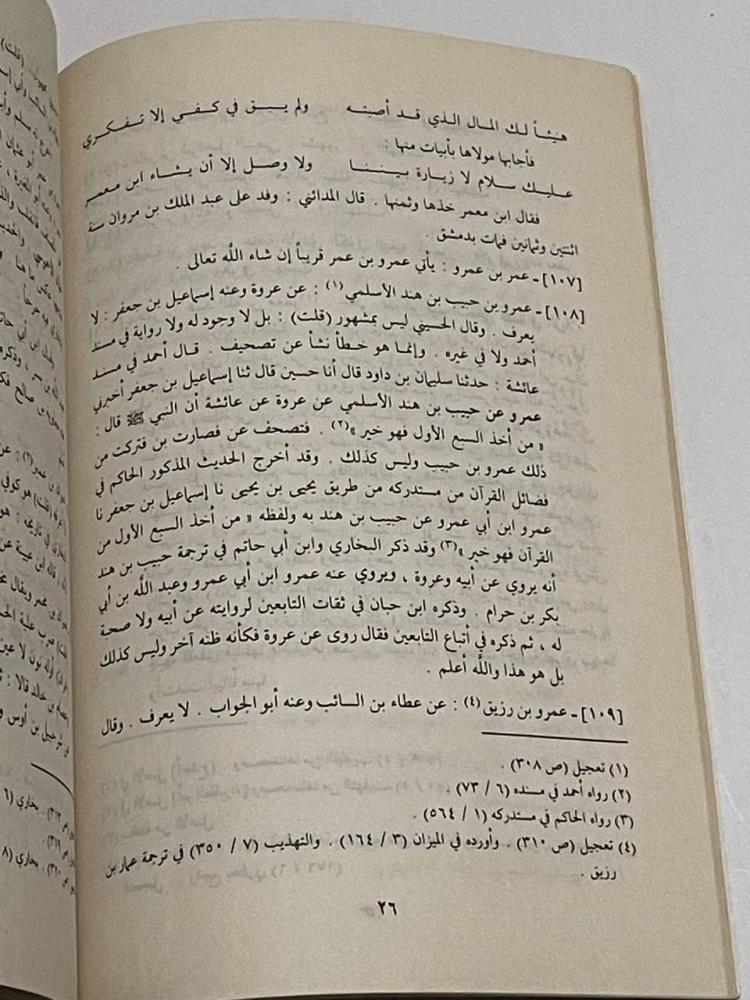 هنيئاً لك المال الذي قد أصبته ولم يبق في كفي إلا تفكري
فأجابها مولاها بأبيات منها :
عليك سلام لا زيارة بيننا ولا وصل إلا أن يشاء ابن معمر
فقال ابن معمر خذها وثمنها . قال المدائني : وفد على عبد الملك بن مروان سنة
اثنتين وثمانين فمات بدمشق .
[١٠٧] ـ عمر بن عمرو : يأتي عمرو بن عمر قريباً إن شاء الله تعالى .
[١٠٨] ـ عمرو بن حبيب بن هند الأسلمي (١) : عن عروة وعنه إسماعيل بن جعفر : لا
يعرف . وقال الحسيني ليس بمشهور (قلت) : بل لا وجود له ولا رواية في مسند
أحمد ولا في غيره . وإنما هو خطأ نشأ عن تصحيف . قال أحمد في مسند
عائشة : حدثنا سليمان بن داود قال أنا حسين قال ثنا إسماعيل بن جعفر أخبرني
عمرو عن حبيب بن هند الأسلمي عن عروة عن عائشة أن النبي ﷺ قال :
« من أخذ السبع الأول فهو خير » (٢) . فتصحف عن فصارت بن فتركت من
ذلك عمرو بن حبيب وليس كذلك . وقد أخرج الحديث المذكور الحاكم في
فضائل القرآن من مستدركه من طريق يحيى بن يحيى نا إسماعيل بن جعفر نا
عمرو ابن أبي عمرو عن حبيب بن هند به ولفظه « من أخذ السبع الأول من
القرآن فهو خير » (٣) وقد ذكر البخاري وابن أبي حاتم في ترجمة حبيب بن هند
أنه يروي عن أبيه وعروة ، ويروي عنه عمرو ابن أبي عمرو وعبد الله بن أبي
بكر بن حرام . وذكره ابن حبان في ثقات التابعين لروايته عن أبيه ولا صحة
له ، ثم ذكره في أتباع التابعين فقال روى عن عروة فكأنه ظنه آخر وليس كذلك
بل هو هذا والله أعلم .
[١٠٩] ـ عمرو بن رزيق (٤) : عن عطاء بن السائب وعنه أبو الجواب . لا يعرف . وقال
(١) تعجيل (ص ٣٠٨) .
(٢) رواه أحمد في مسنده (٦ / ٧٣) .
(٣) رواه الحاكم في مستدركه (١ / ٥٦٤) .
(٤) تعجيل (ص ٣١٠) . وأورده في الميزان (٣ / ١٦٤) . والتهذيب (٧ / ٣٥٠) في ترجمة عمار بن
رزيق .
٢٦